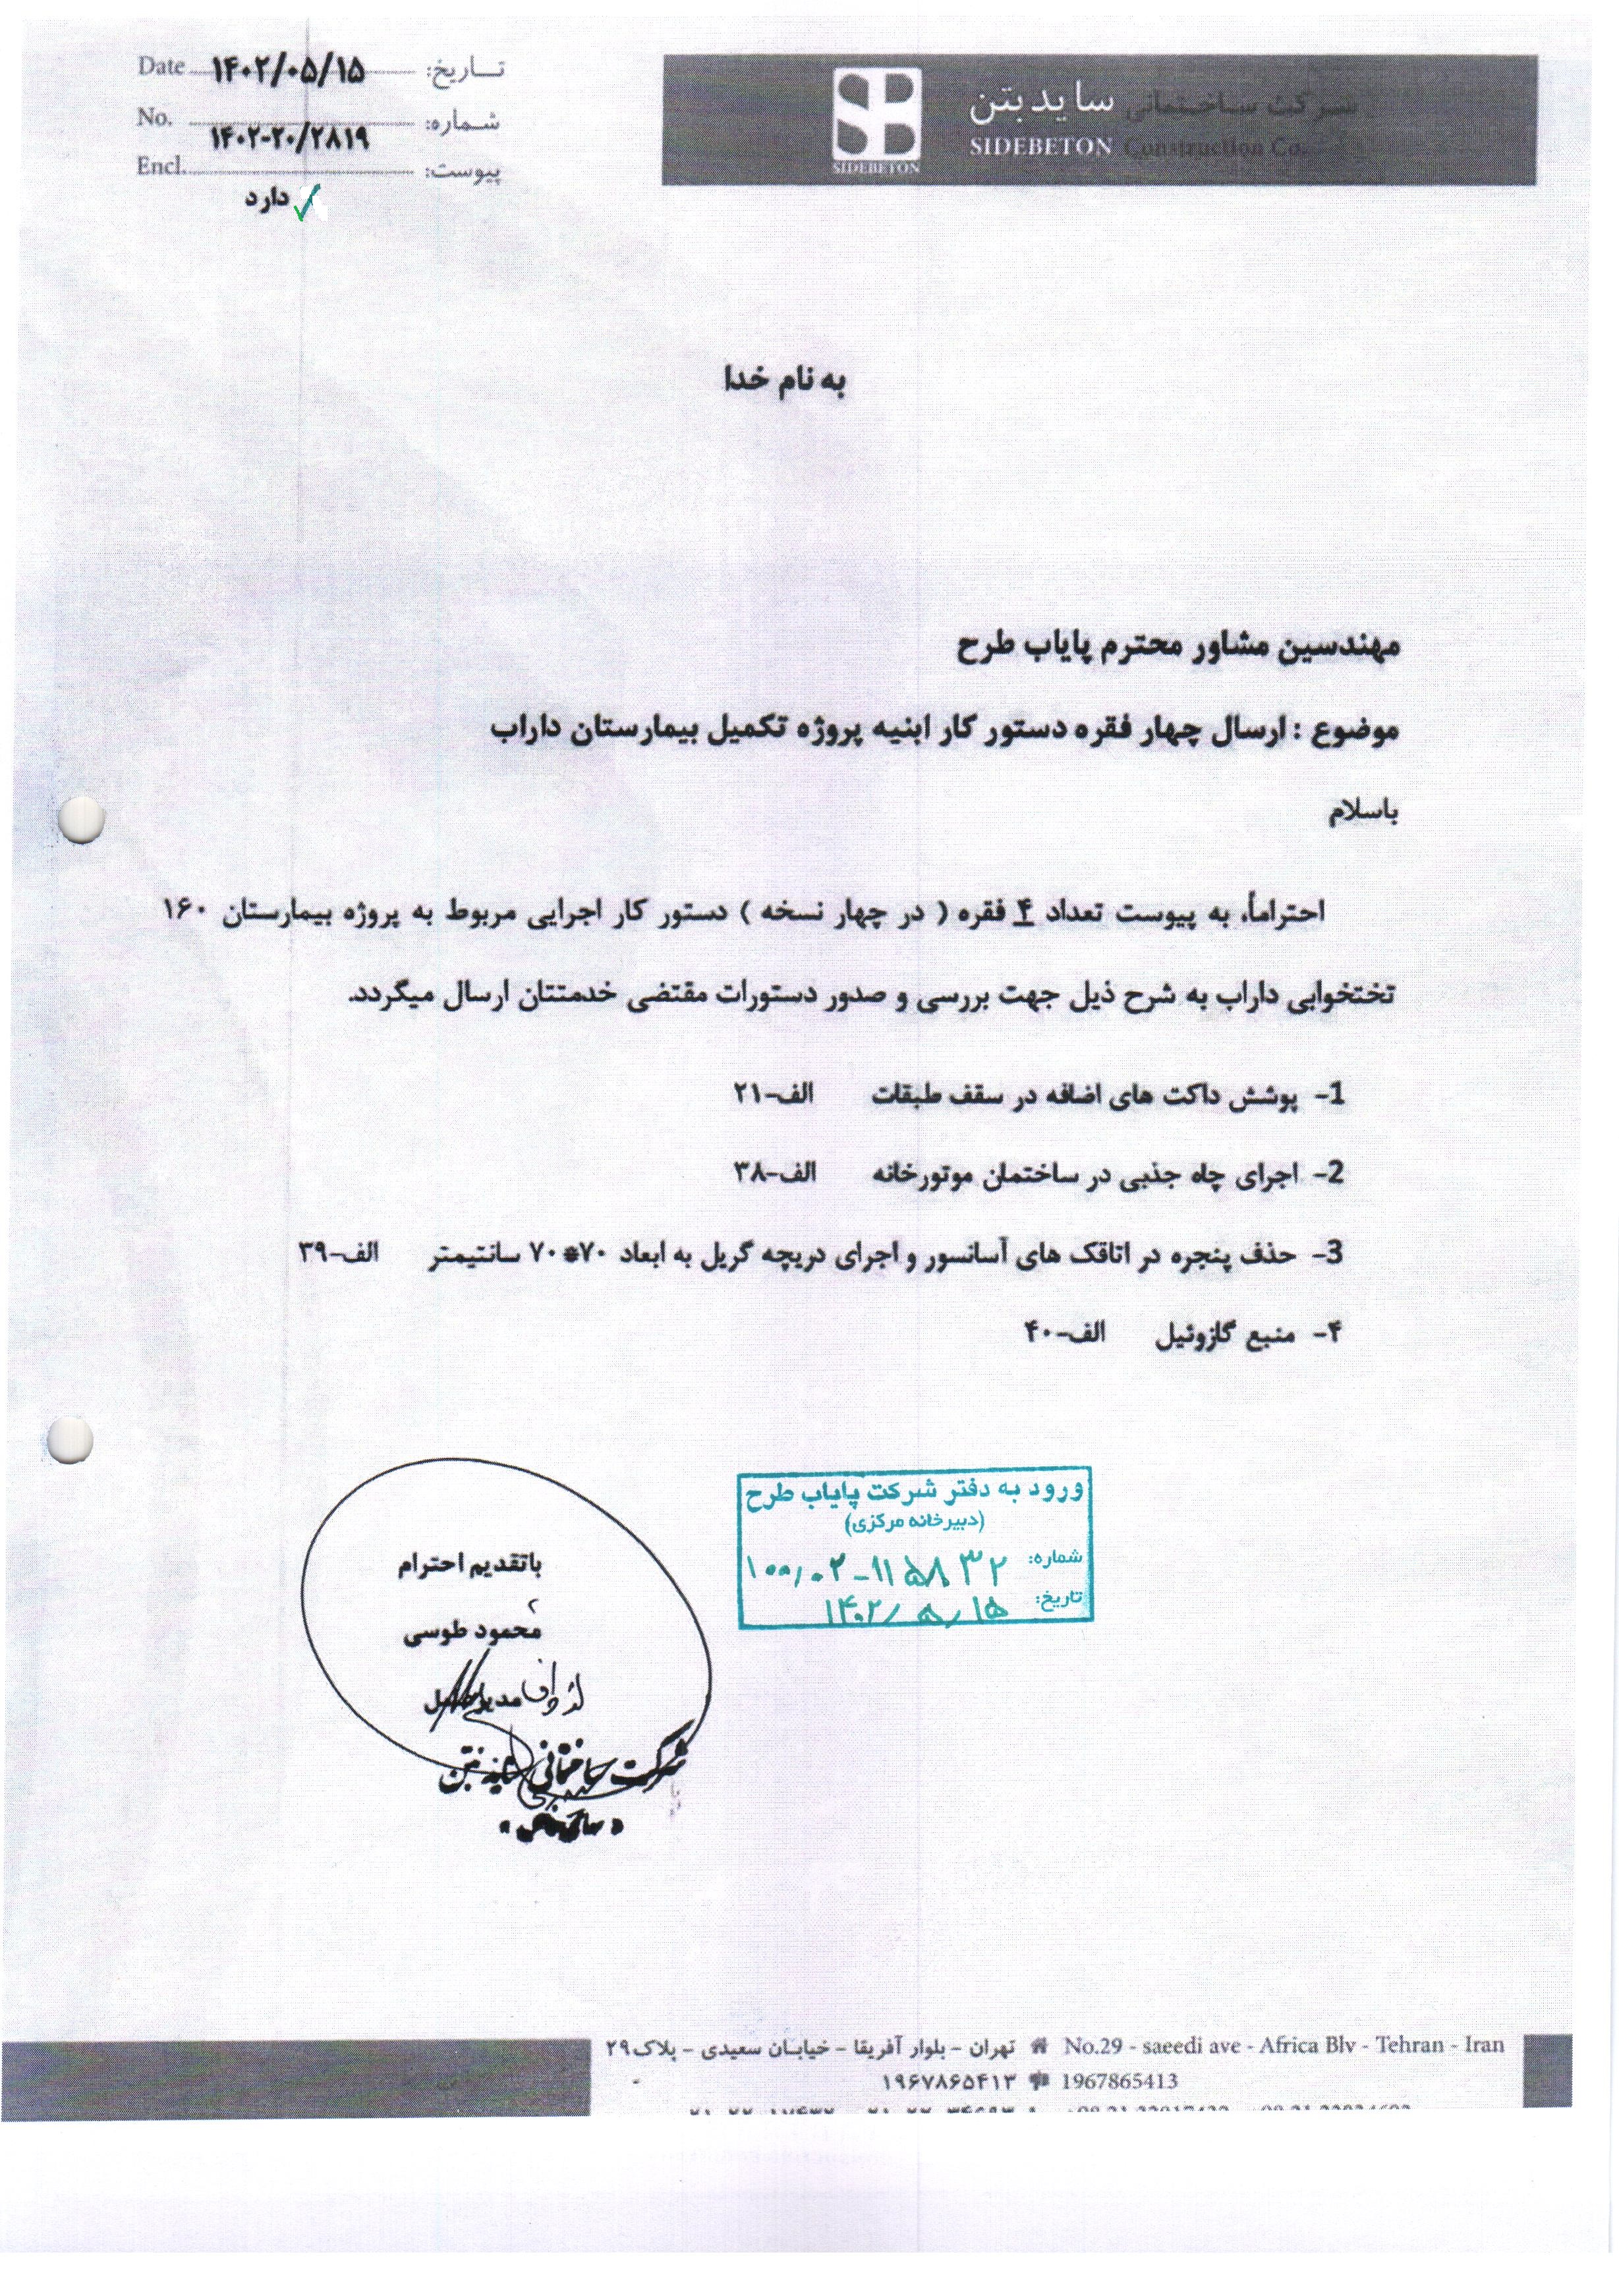 Date ۱۴۰۲/۰۵/۱۵ تاریخ:
No. ۱۴۰۲-۲۰/۲۸۱۹ شماره:
Encl. پیوست:
دارد
شرکت ساختمانی ساید بتن
SIDEBETON Construction Co.
SIDEBETON
به نام خدا
مهندسین مشاور محترم پایاب طرح
موضوع : ارسال چهار فقره دستور کار ابنیه پروژه تکمیل بیمارستان داراب
باسلام
احتراماً، به پیوست تعداد ۴ فقره ( در چهار نسخه ) دستور کار اجرایی مربوط به پروژه بیمارستان ۱۶۰
تختخوابی داراب به شرح ذیل جهت بررسی و صدور دستورات مقتضی خدمتتان ارسال میگردد.
1- پوشش داکت های اضافه در سقف طبقات الف-۲۱
2- اجرای چاه جذبی در ساختمان موتورخانه الف-۳۸
3- حذف پنجره در اتاقک های آسانسور و اجرای دریچه گریل به ابعاد ۷۰*۷۰ سانتیمتر الف-۳۹
۴- منبع گازوئیل الف-۴۰
ورود به دفتر شرکت پایاب طرح
(دبیرخانه مرکزی)
شماره: ۱۰۰/۰۲-۱۱۵۸۳۲
تاریخ: ۱۴۰۲/۵/۱۵
باتقدیم احترام
محمود طوسی
مدیرعامل
شرکت ساختمانی ساید بتن
تهران - بلوار آفریقا - خیابان سعیدی - پلاک ۲۹ No.29 - saeedi ave - Africa Blv - Tehran - Iran
۱۹۶۷۸۶۵۴۱۳ 1967865413